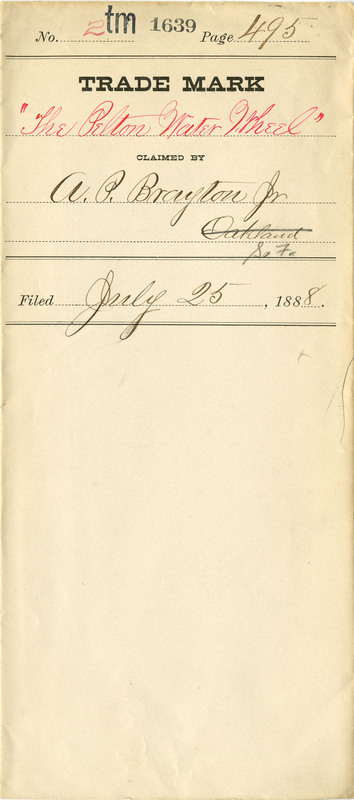 No. 2 tm 1639 Page 495
TRADE MARK
"The Pelton Water Wheel"
CLAIMED BY
A. P. Brayton Jr
Oakland
S. F.
Filed July 25, 1888.